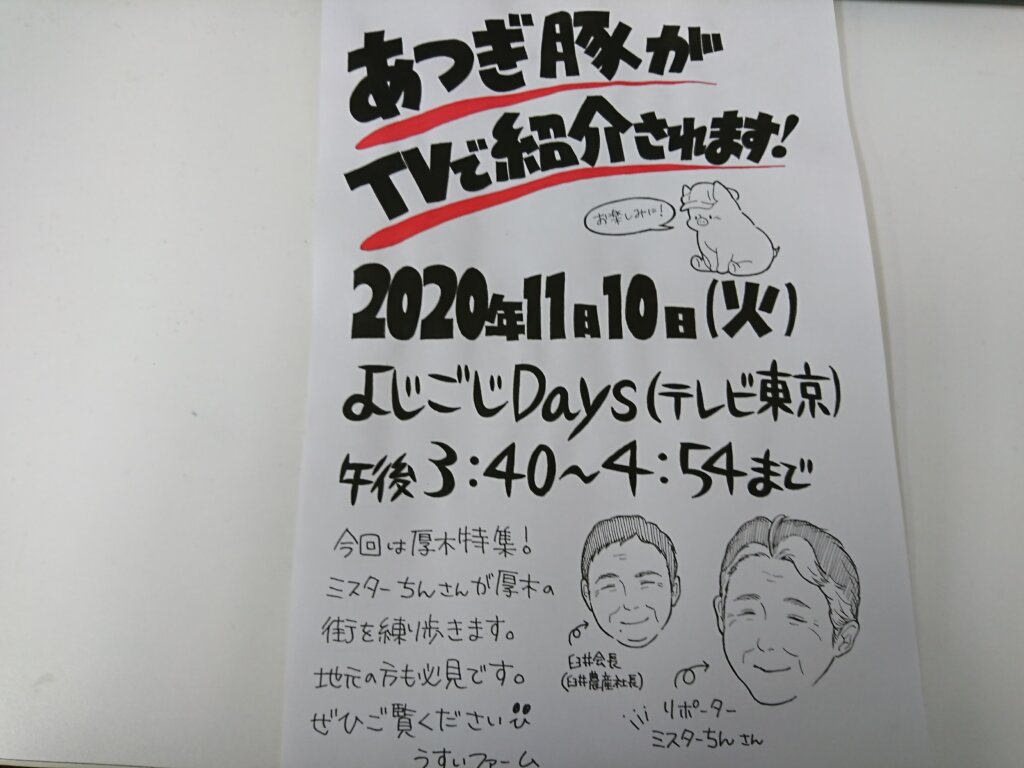 あつぎ豚が
TVで紹介されます!
お楽しみに!
2020年11月10日(火)
よじごじDays(テレビ東京)
午後3:40〜4:54まで
今回は厚木特集!
ミスターちんさんが厚木の
街を練り歩きます。
地元の方も必見です。
ぜひご覧ください
うすいファーム
臼井会長
(臼井農産社長)
リポーター
ミスターちんさん